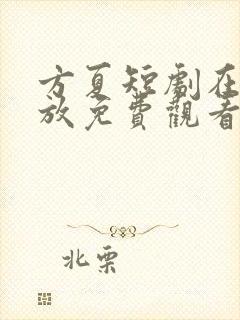 方夏短劇在
放免費觀看
北栗